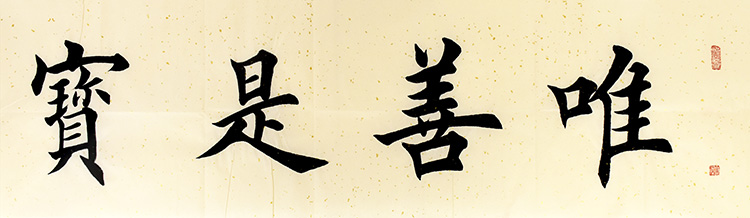 唯善是寶